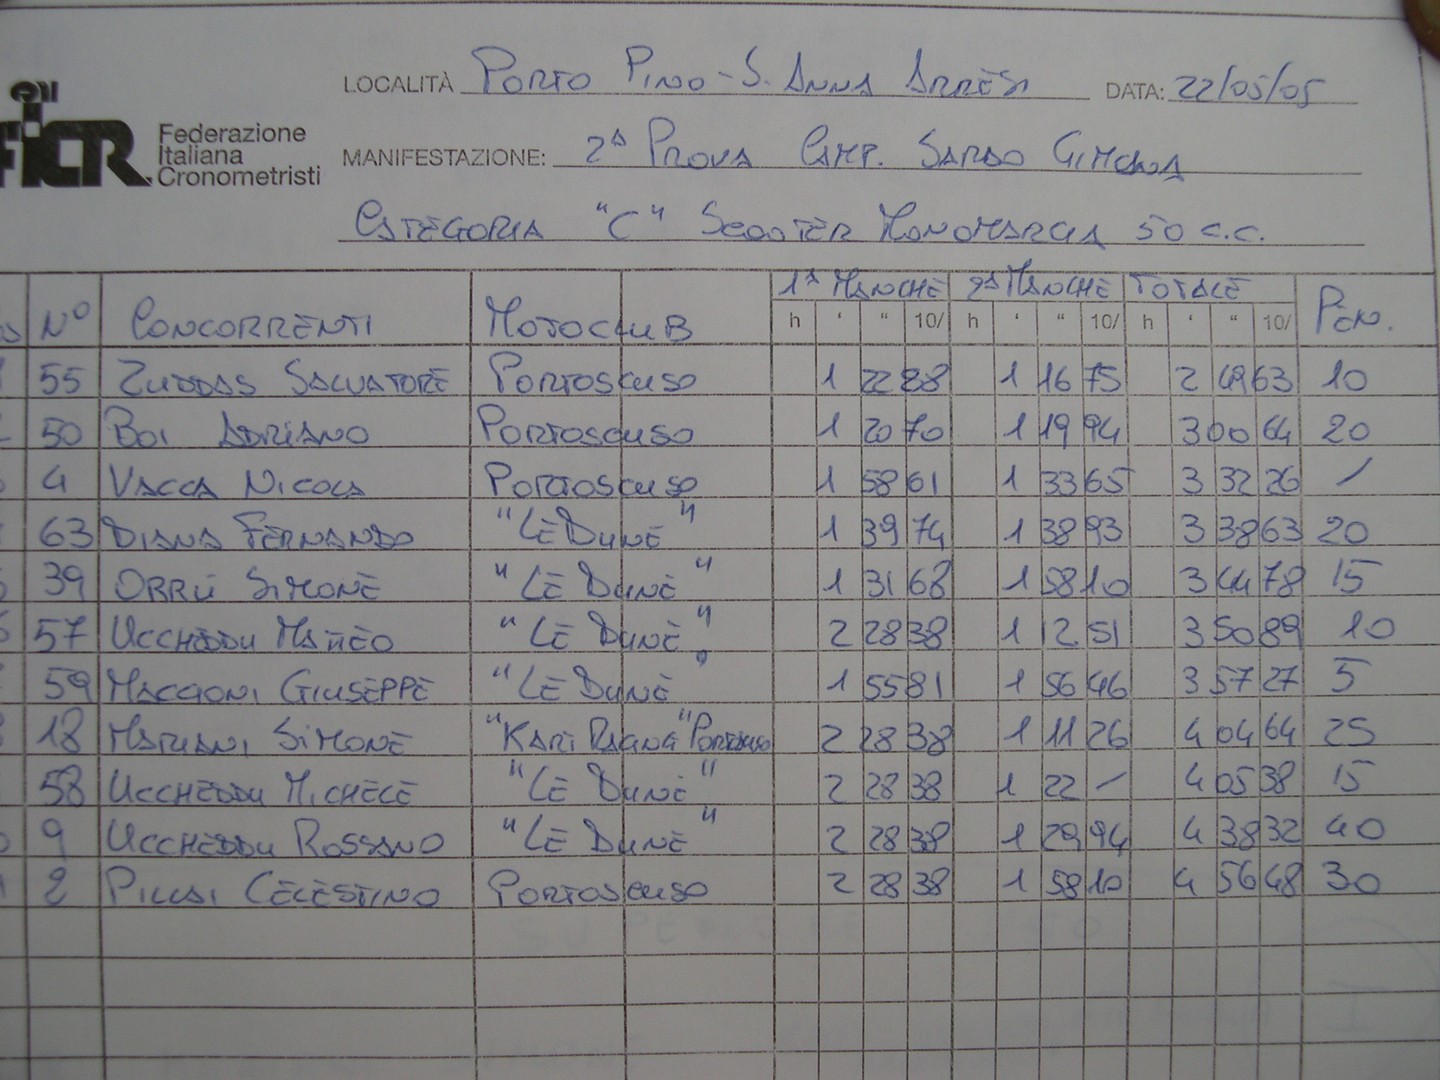 LOCALITÀ PORTO PINO - S. ANNA ARRESI DATA: 22/05/05
FICR Federazione
Italiana
Cronometristi
MANIFESTAZIONE: 2ª PROVA CAMP. SARDO GIMCANA
CATEGORIA "C" SCOOTER MONOMARCIA 50 C.C.
1ª MANCHE 2ª MANCHE TOTALE
Nº CONCORRENTI MOTOCLUB h ' " 10/ h ' " 10/ h ' " 10/ PEN.
55 ZUDDAS SALVATORE PORTOSCUSO 1 22 88 1 16 75 2 49 63 10
50 BOI ADRIANO PORTOSCUSO 1 20 70 1 19 94 3 00 64 20
4 VACCA NICOLA PORTOSCUSO 1 58 61 1 33 65 3 32 26 /
63 DIANA FERNANDO "LE DUNE" 1 39 74 1 38 93 3 38 63 20
39 ORRÙ SIMONE "LE DUNE" 1 31 68 1 58 10 3 44 78 15
57 UCCHEDDU MATTEO "LE DUNE" 2 28 38 1 12 51 3 50 89 10
59 MACCIONI GIUSEPPE "LE DUNE" 1 55 81 1 56 46 3 57 27 5
18 MARIANI SIMONE "KART RAGNA" PORTOSCUSO 2 28 38 1 11 26 4 04 64 25
58 UCCHEDDU MICHELE "LE DUNE" 2 28 38 1 22 - 4 05 38 15
9 UCCHEDDU ROSSANO "LE DUNE" 2 28 38 1 29 94 4 38 32 40
2 PILLAI CELESTINO PORTOSCUSO 2 28 38 1 58 10 4 56 48 30